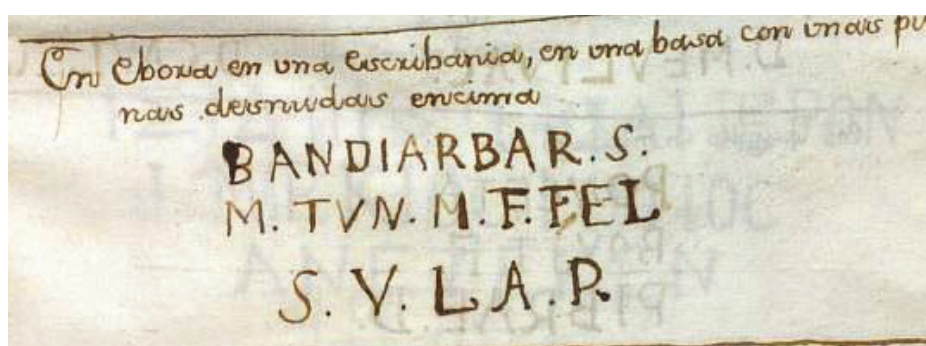 En Ebora en una Escribania, en una basa con unas pi
nas desnudas encima
BANDIARBAR. S.
M. TVN. M. F. FEL
S. V. L. A. P.